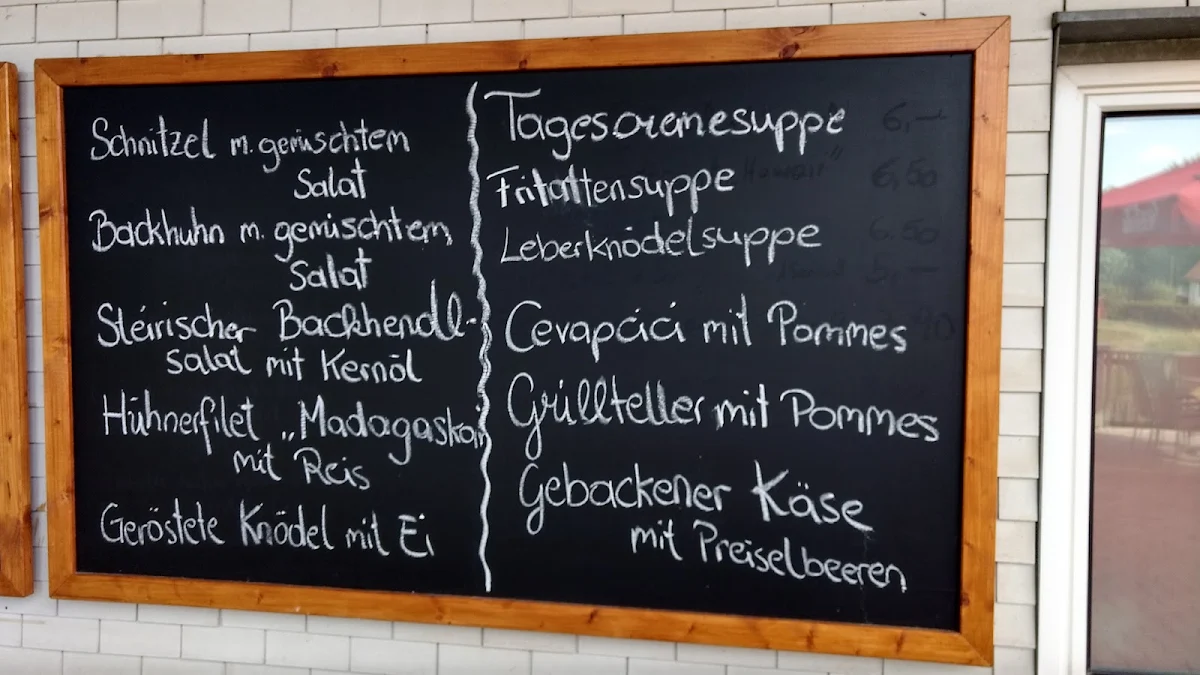 Schnitzel m. gemischtem
Salat
Backhuhn m. gemischtem
Salat
Steirischer Backhendl-
salat mit Kernöl
Hühnerfilet „Madagaskar
mit Reis
Geröstete Knödel mit Ei
Tagescremesuppe
Fritattensuppe
Leberknödelsuppe
Cevapcici mit Pommes
Grillteller mit Pommes
Gebackener Käse
mit Preiselbeeren
6,–
Hawaii"
6,50
6.50
5,–